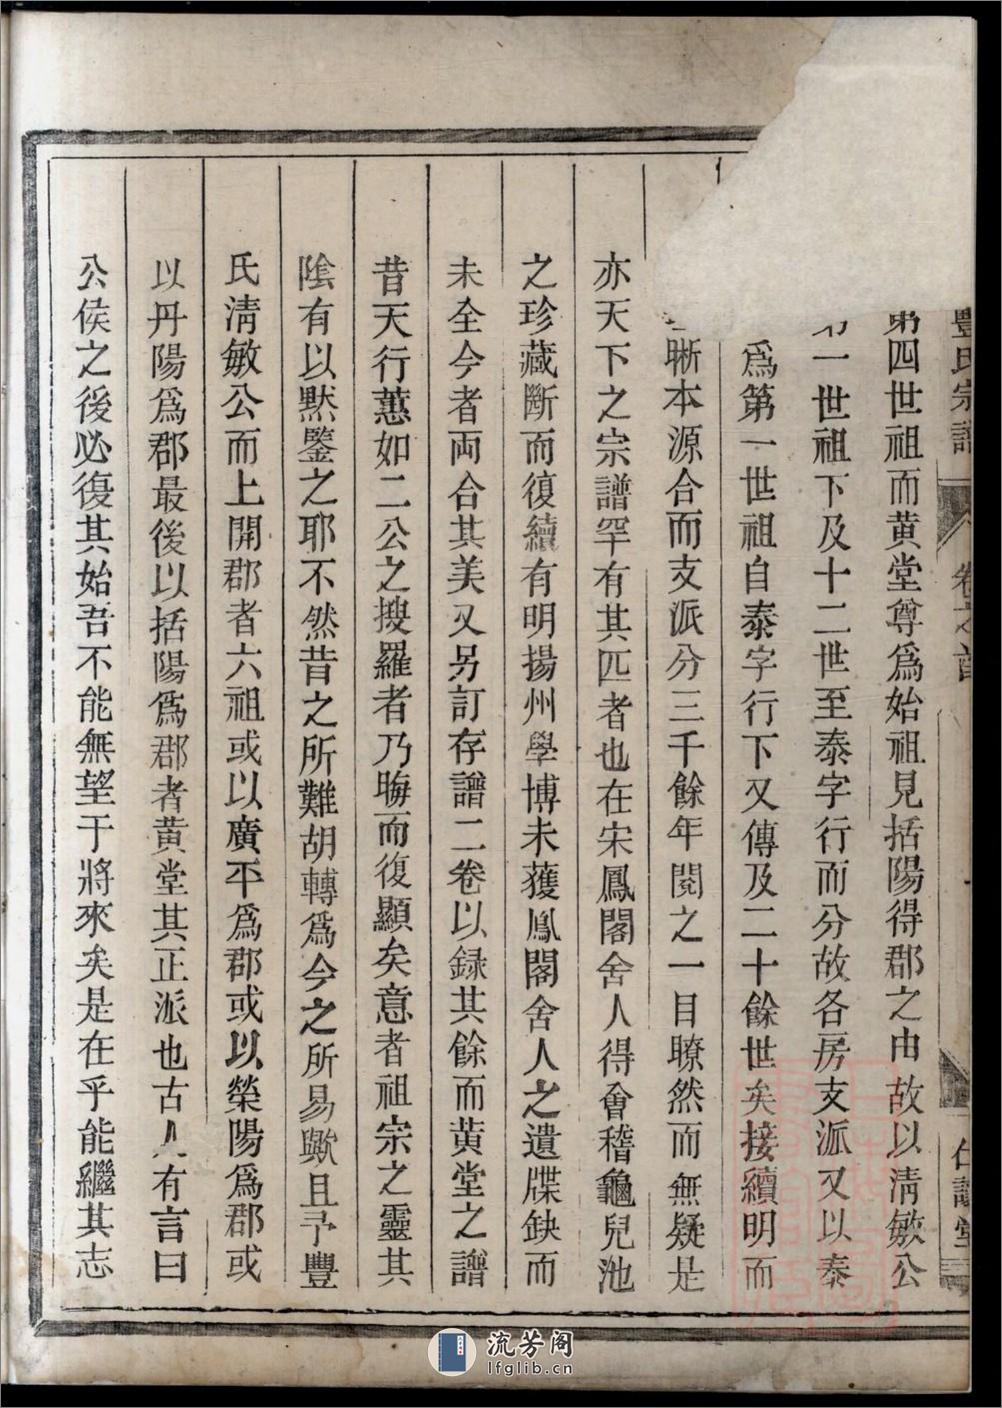 豐氏宗譜 卷之首 一
第四世祖而黄堂尊為始祖見括陽得郡之由故以清敏公
第一世祖下及十二世至泰字行而分故各房支派又以泰
為第一世祖自泰字行下又傳及二十餘世矣接續明而
晰本源合而支派分三千餘年閱之一目瞭然而無疑是
亦天下之宗譜罕有其匹者也在宋鳳閣舍人得會稽龜兒池
之珍藏斷而復續有明揚州學博未獲鳳閣舍人之遺牒缺而
未全今者両合其美又另訂存譜二卷以録其餘而黄堂之譜
昔天行蕙如二公之搜羅者乃晦而復顯矣意者祖宗之靈其
隂有以默鑒之耶不然昔之所難胡轉為今之所易歟且予豐
氏清敏公而上開郡者六祖或以廣平為郡或以榮陽為郡或
以丹陽為郡最後以括陽為郡者黄堂其正派也古人有言曰
公侯之後必復其始吾不能無望于將來矣是在乎能繼其志
流芳阁
lfglib.cn